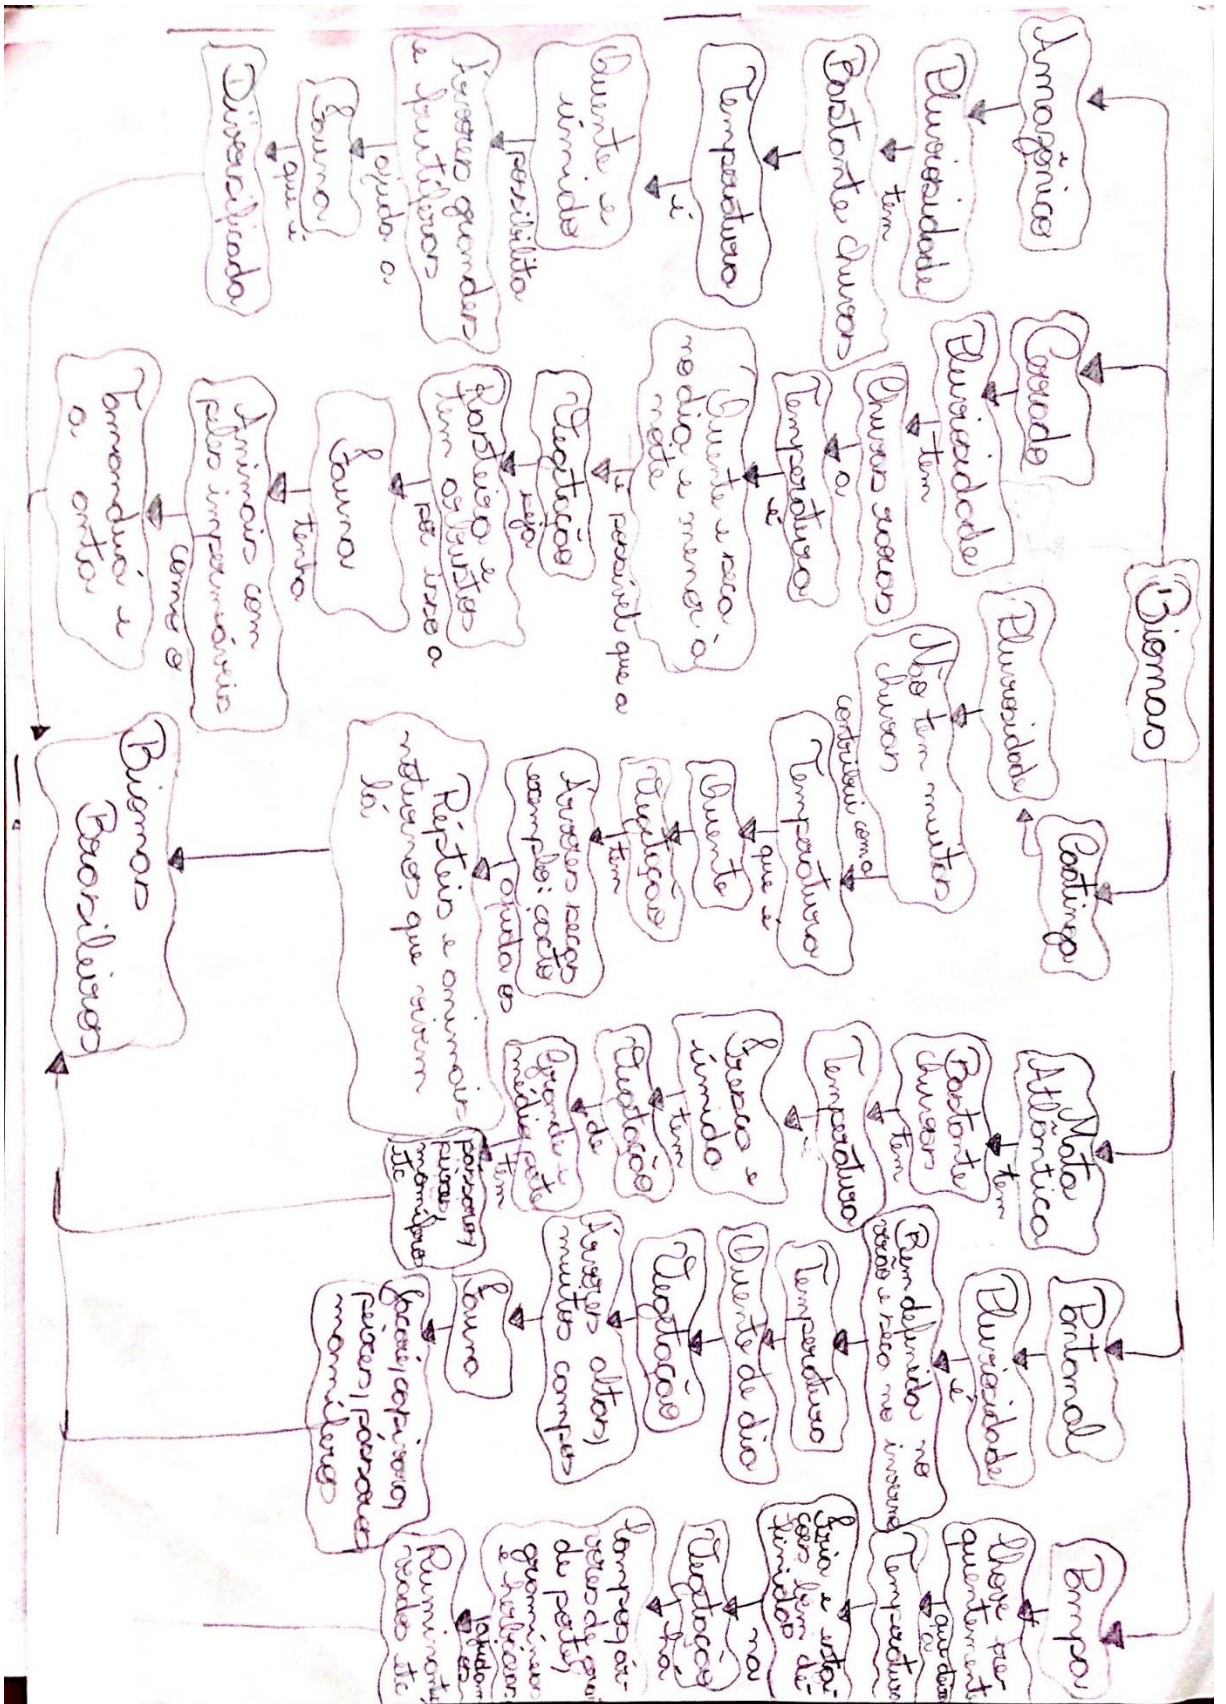 Biomas
Amazônico
é
Pluviosidade
tem
Bastante chuvas
Temperatura
é
Quente e
úmido
possibilita
Árvores grandes
e frutíferas
ajuda a
Fauna
que é
Diversificada
Cerrado
Pluviosidade
tem
Chuvas raras
a
Temperatura
é
Quente e seca
no dia e menor à
noite
é possível que a
Vegetação
seja
Rasteira e
tem arbustos
por isso a
Fauna
tenha
Animais com
peles impermeáveis
como o
Tamanduá e
a anta
Caatinga
Pluviosidade
Não tem muitas
chuvas
contribui com a
Temperatura
que é
Quente
Vegetação
tem
Árvores secas
exemplo: cacto
ajuda os
Répteis e animais
noturnos que vivem
lá
Mata
Atlântica
tem
Bastante
chuvas
tem
Temperatura
Fresco e
úmido
tem
Vegetação
de
Grande e
médio porte
têm
pássaros,
peixes,
mamífero
etc
Pantanal
Pluviosidade
é
Bem definida no
verão e seca no inverno
Temperatura
Quente de dia
Vegetação
Árvores altas,
muitos campos
Fauna
Jacaré, capivara,
peixes, pássaros
mamíferos
Pampa
Chove fre-
quentemente
que deixa
a
Temperatura
Fria e esta-
ções bem de-
finidas
na
Vegetação
há
Campos, ár-
vores de gran
de porte,
gramíneas
e herbáceas
ajudam
os
Ruminante,
veados etc
Biomas
Brasileiros